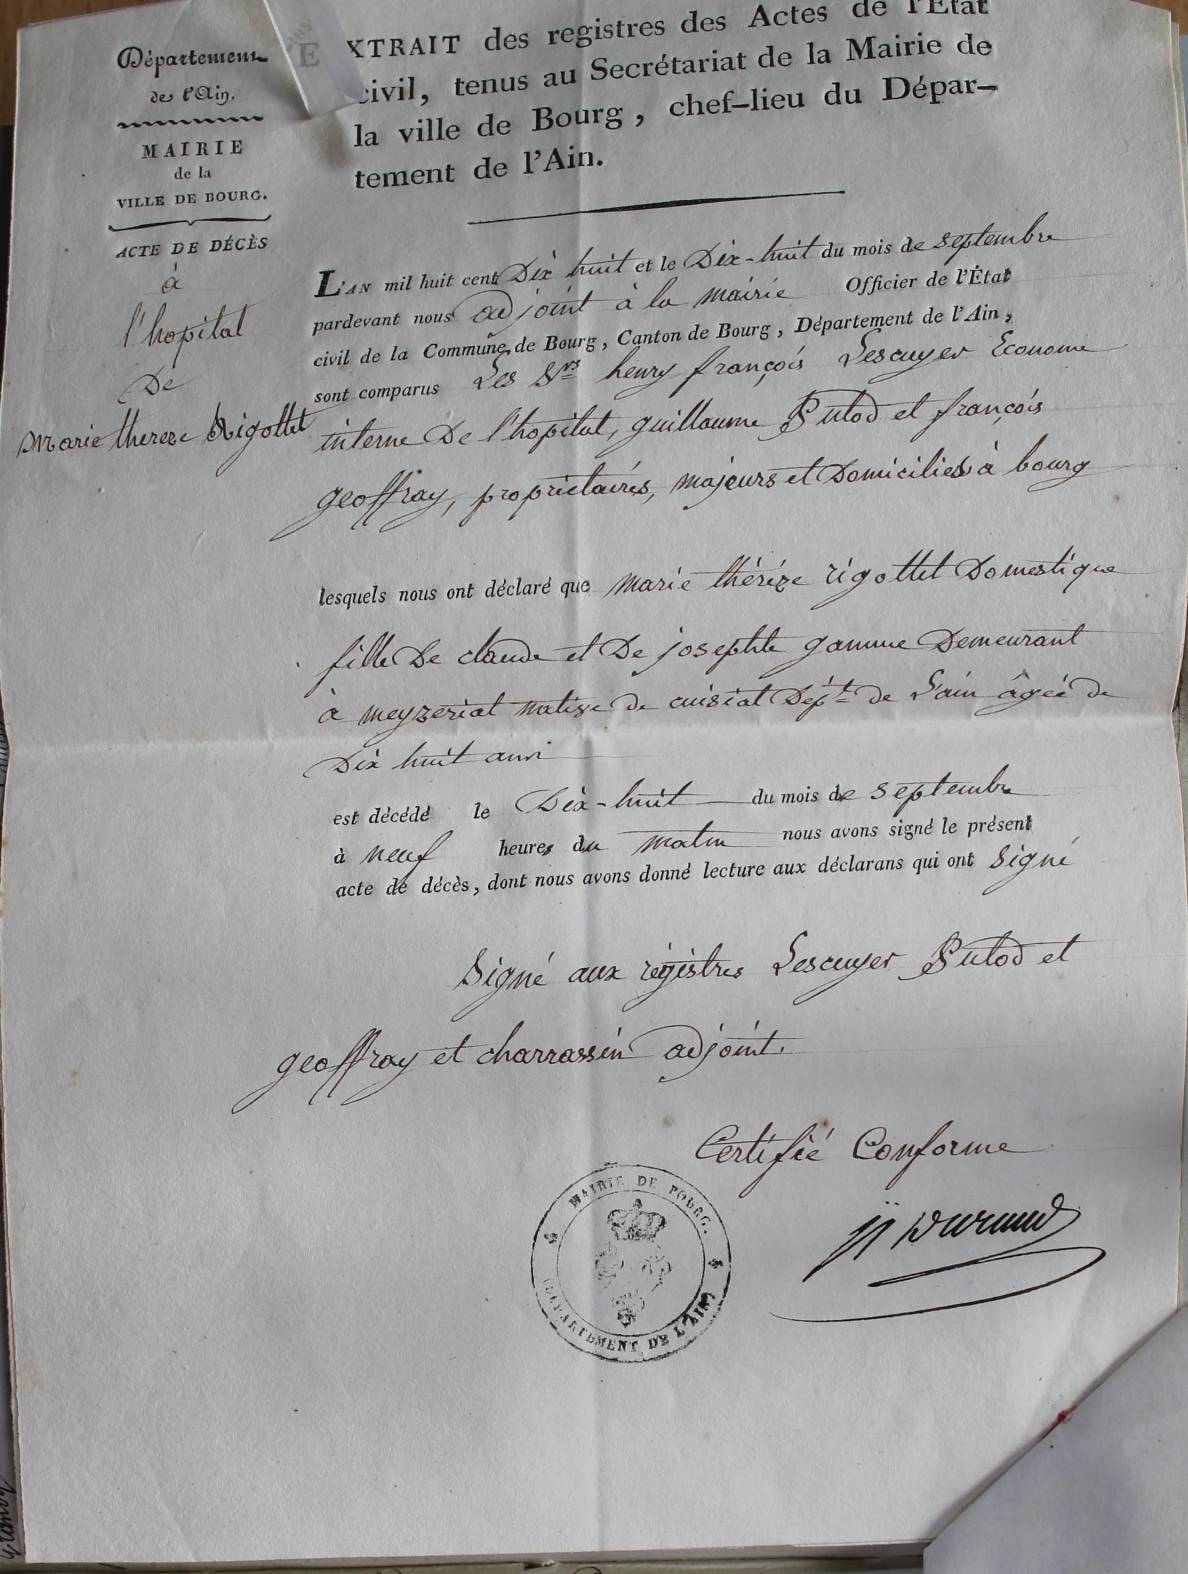 Département
de l'Ain.
MAIRIE
de la
VILLE DE BOURG.
ACTE DE DÉCÈS
à
l'hopital
De
Marie therese Rigottet
EXTRAIT des registres des Actes de l'État
civil, tenus au Secrétariat de la Mairie de
la ville de Bourg, chef-lieu du Dépar-
tement de l'Ain.
L'AN mil huit cent Dix huit et le Dix-huit du mois de septembre
pardevant nous adjoint à la mairie Officier de l'État
civil de la Commune de Bourg, Canton de Bourg, Département de l'Ain,
sont comparus Les Srs henry françois Lescuyer Econome
interne De l'hopital, guillaume Putod et françois
geoffray, propriétaires, majeurs et Domiciliés à bourg
lesquels nous ont déclaré que marie thérèze rigottet Domestique
fille De claude et De josephte gamme Demeurant
à meyzeriat native de cuisiat Dépt de L'ain âgée de
Dix huit ans
est décédé le Dix-huit du mois de septembre
à neuf heures du matin nous avons signé le présent
acte de décès, dont nous avons donné lecture aux déclarans qui ont signé
Signé aux régistres Lescuyer Putod et
geoffray et charrassin adjoint.
Certifié Conforme
Durand
MAIRIE DE BOURG.
(DÉPARTEMENT DE L'AIN)